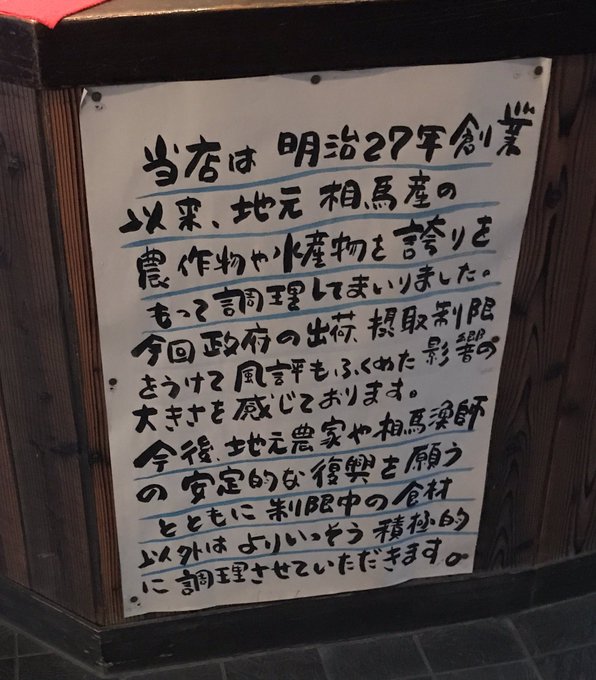 当店は 明治27年創業
以来、地元 相馬産の
農作物や水産物を誇りを
もって調理してまいりました。
今回政府の出荷、摂取制限
をうけて風評もふくめた影響の
大きさを感じております。
今後、地元農家や相馬漁師
の安定的な復興を願う
とともに制限中の食材
以外はよりいっそう積極的
に調理させていただきます。